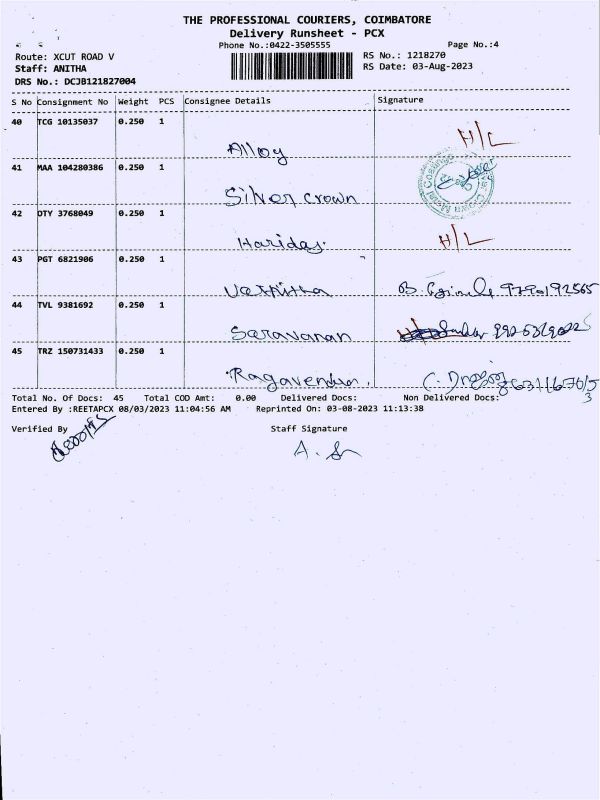 THE PROFESSIONAL COURIERS, COIMBATORE
Delivery Runsheet - PCX
Phone No.:0422-3505555 Page No.:4
Route: XCUT ROAD V RS No.: 1218270
Staff: ANITHA RS Date: 03-Aug-2023
DRS No.: DCJB121827004
S No Consignment No Weight PCS Consignee Details Signature
40 TCG 10135037 0.250 1
Alloy H/L
41 MAA 104280386 0.250 1
Silver crown
42 OTY 3768049 0.250 1
Haridas. H/L
43 PGT 6821906 0.250 1
Varshitha B.
44 TVL 9381692 0.250 1
Saravanan
45 TRZ 150731433 0.250 1
Ragavendran. C.
Total No. Of Docs: 45 Total COD Amt: 0.00 Delivered Docs: Non Delivered Docs:
Entered By :REETAPCX 08/03/2023 11:04:56 AM Reprinted On: 03-08-2023 11:13:38
Verified By Staff Signature